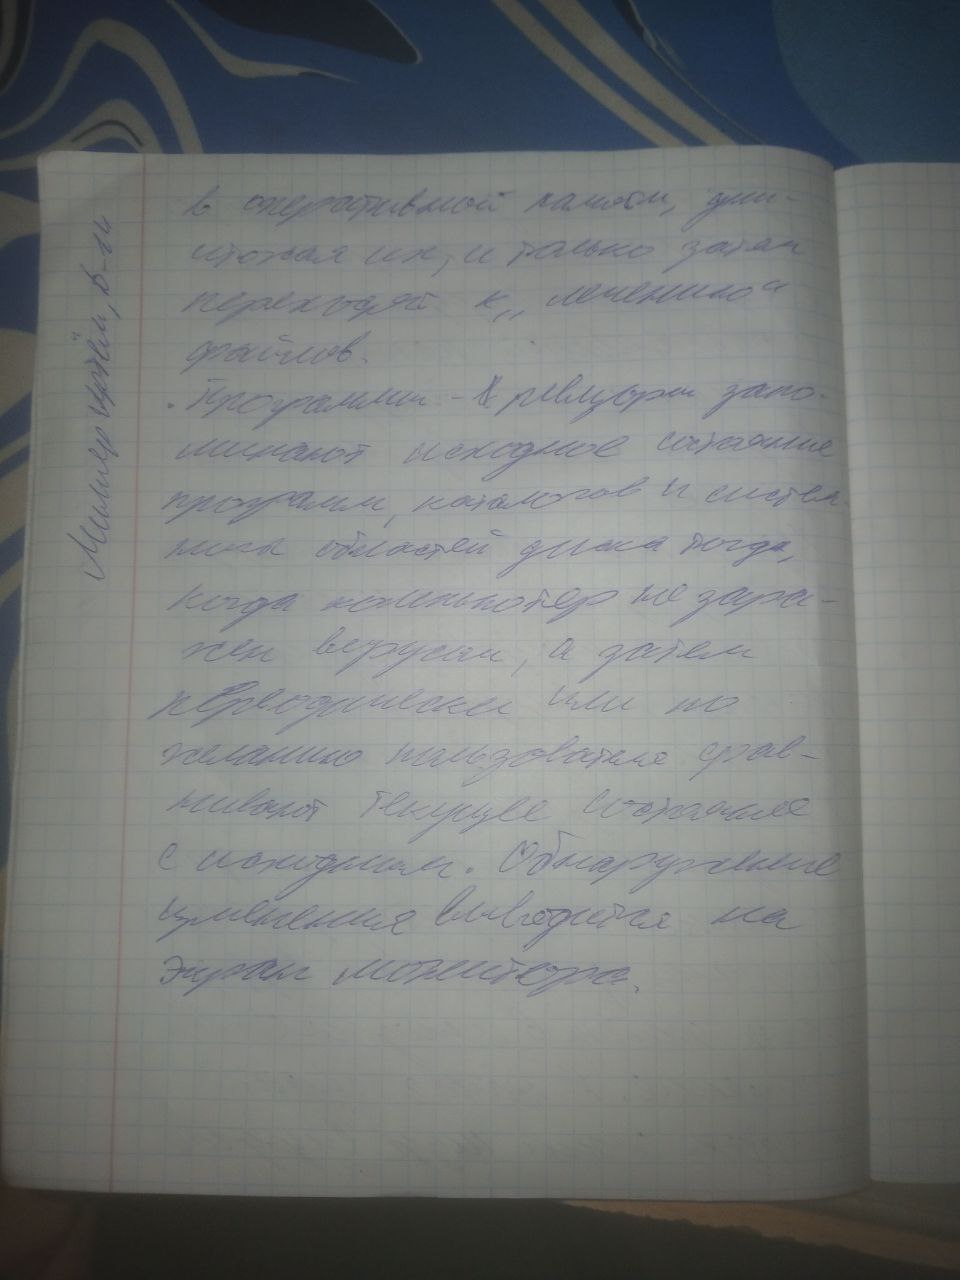 в оперативной памяти, уни-
чтожая их, и только затем
переходят к „лечению“
файлов.
. Программы - ревизоры запо-
минают исходное состояние
программ, каталогов и систем-
ных областей диска тогда,
когда компьютер не зара-
жен вирусом, а затем
периодически или по
желанию пользователя срав-
нивают текущее состояние
с исходным. Обнаружение
изменения выводится на
экран монитора.
Миллер Артём,